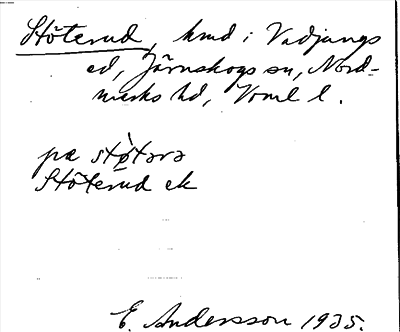 Stöterud, hmd i Vadjungs
ed, Järnskogs sn, Nord-
marks hd, Vrml l.
på støtərə
Stöterud ek
E. Andersson 1935.